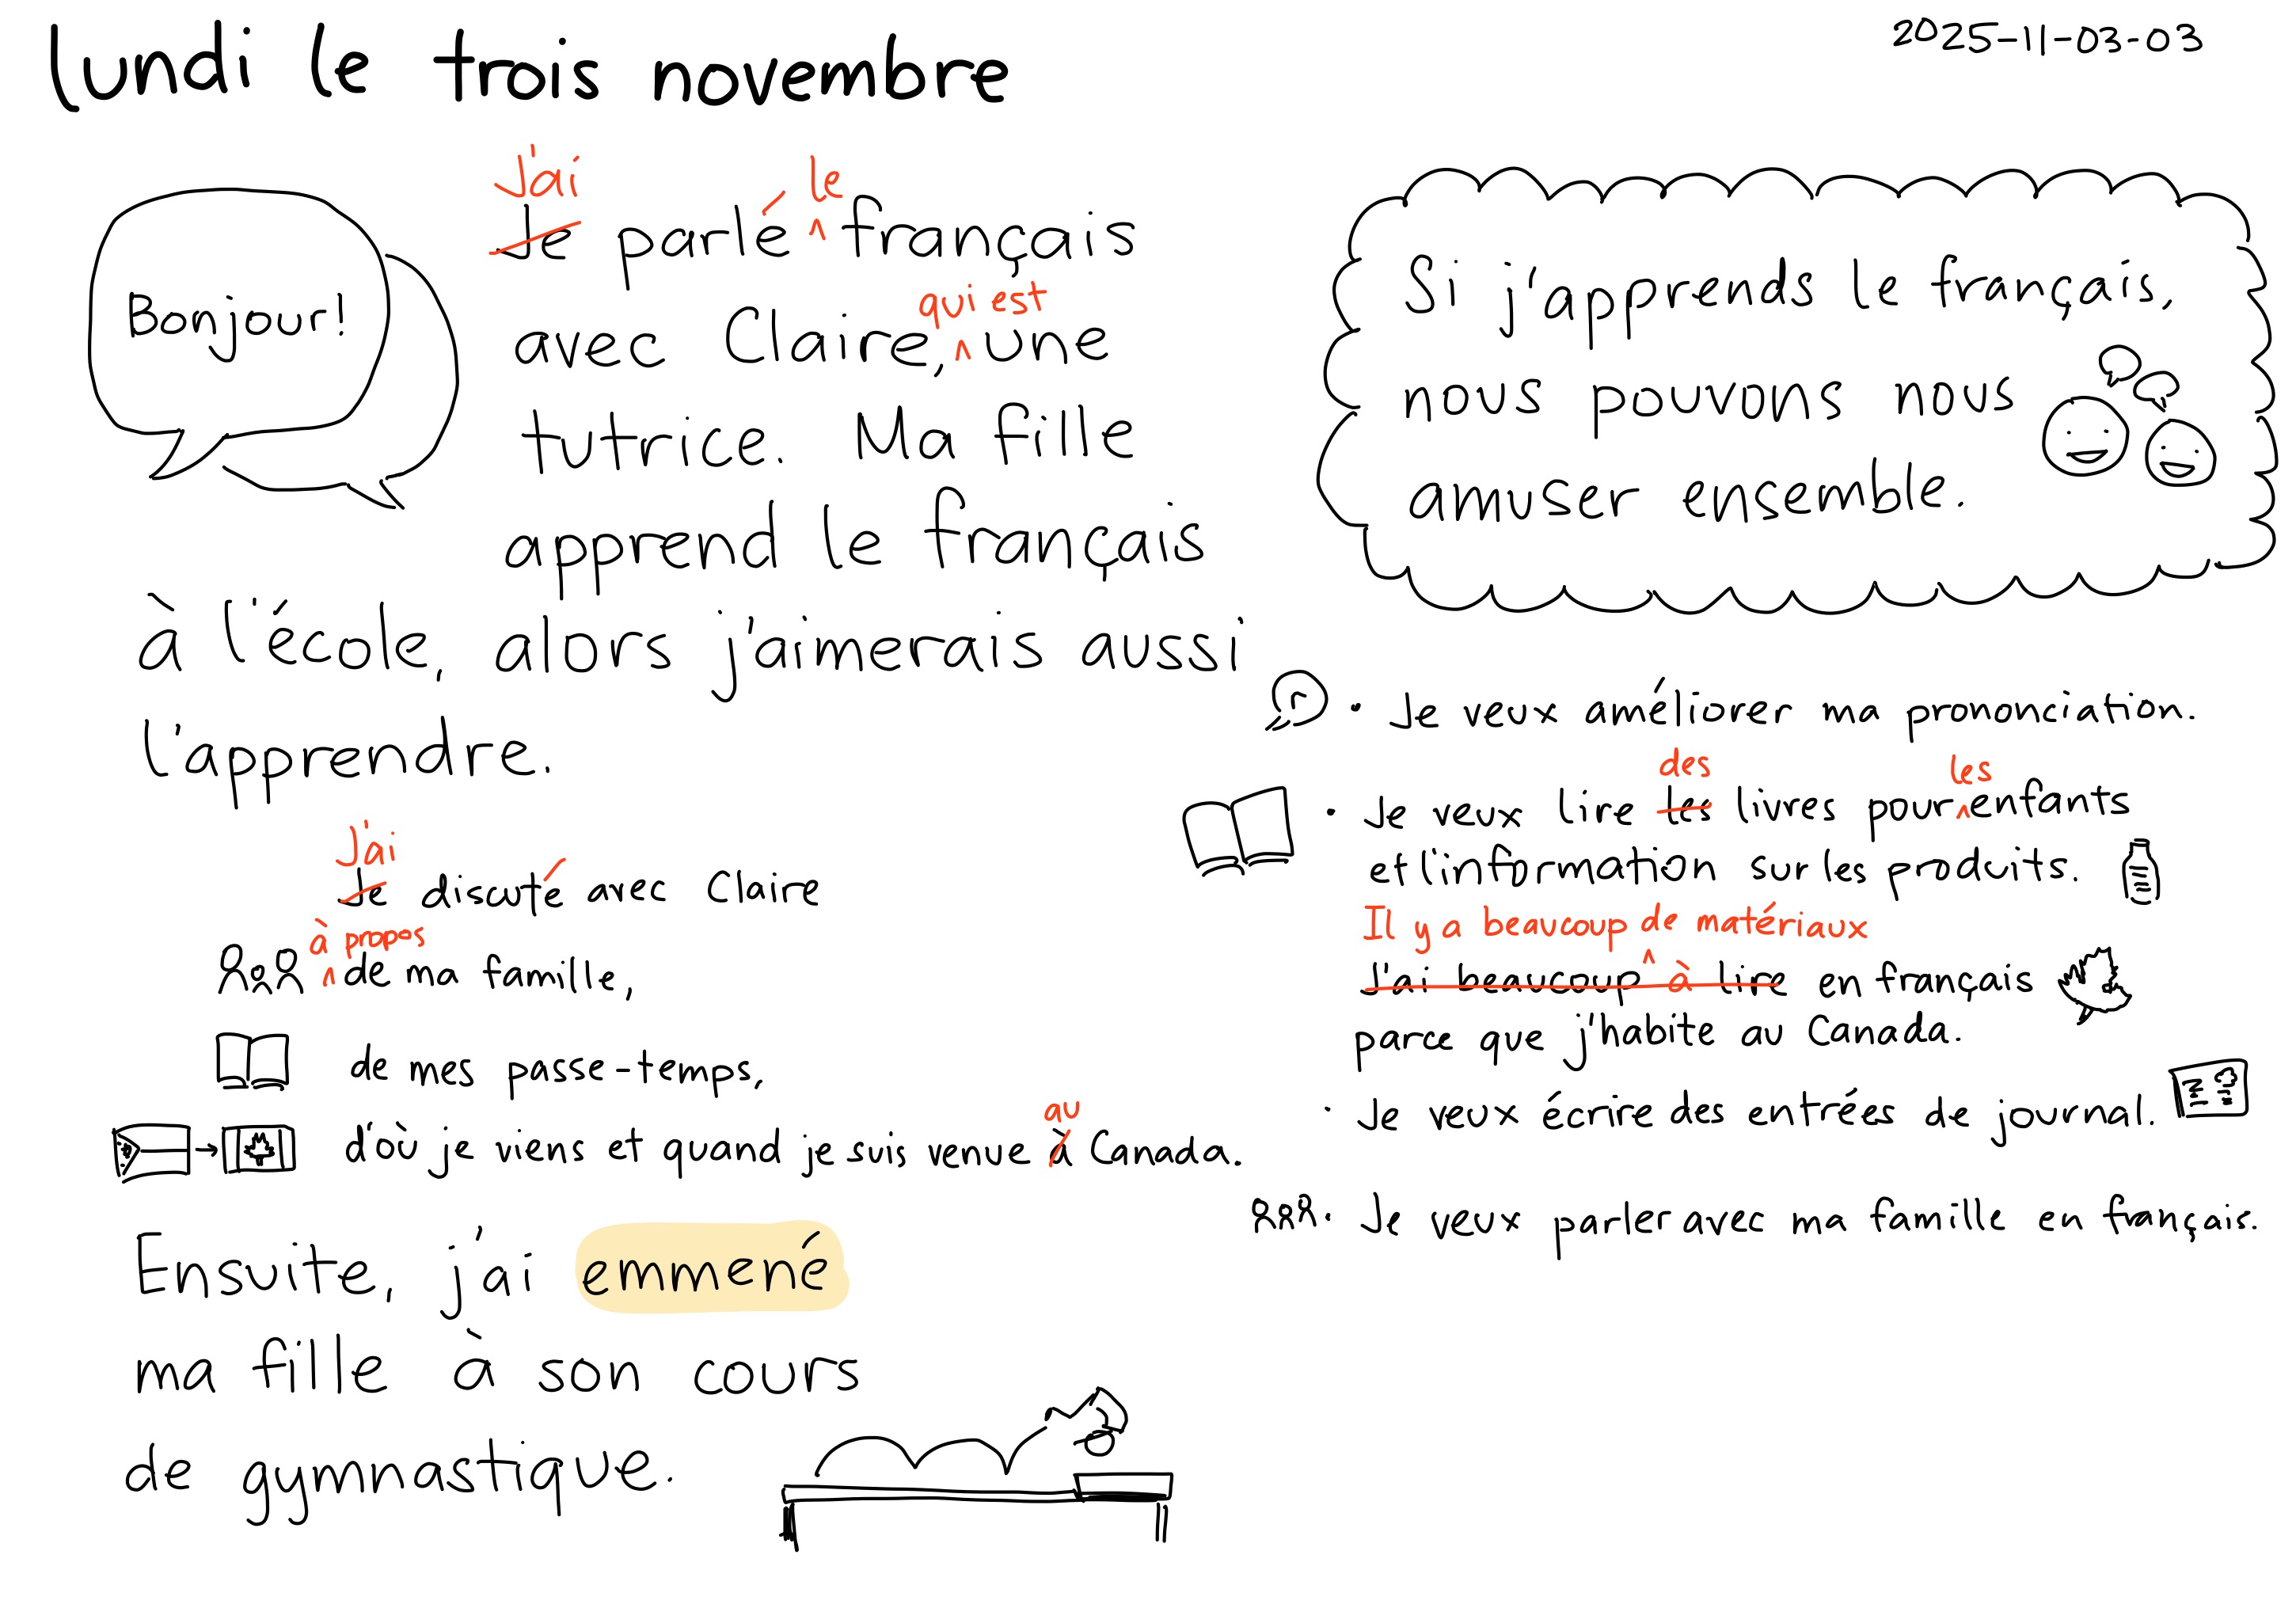 lundi le trois novembre
2025-11-03-03
Bonjour!
J'ai le
Je parlé français
qui est
avec Claire, une
tutrice. Ma fille
apprend le français
à l'école, alors j'aimerais aussi
l'apprendre.
J'ai
Je discuté avec Claire
à propos
de ma famille,
de mes passe-temps,
au
d'où je viens et quand je suis venue à Canada.
Ensuite, j'ai emmené
ma fille à son cours
de gymnastique.
Si j'apprends le français,
nous pouvons nous
amuser ensemble.
r
• Je veux améliorer ma prononciation.
des les
• Je veux lire les livres pour enfants
et l'information sur les produits.
Il y a beaucoup de matériaux
J'ai beaucoup à lire en français
parce que j'habite au Canada.
• Je veux écrire des entrées de journal.
• Je veux parler avec ma famille en français.